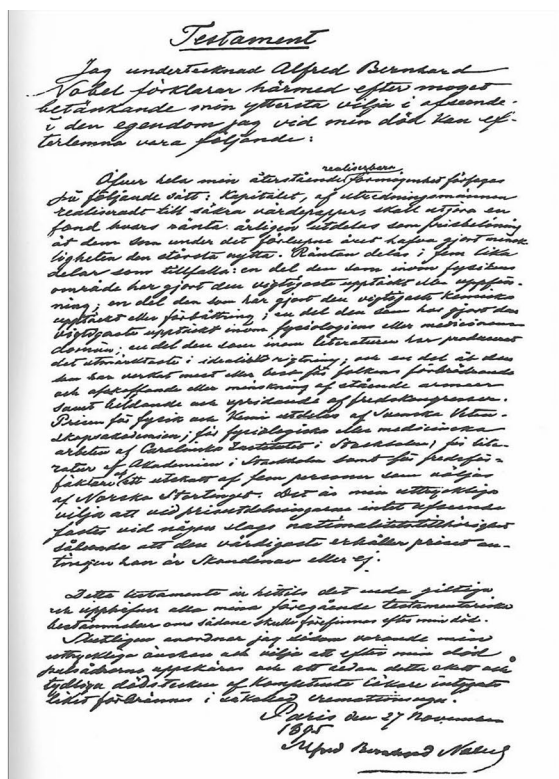 Testament
Jag undertecknad Alfred Bernhard
Nobel förklarar härmed efter moget
betänkande min yttersta vilja i afseende
i den egendom jag vid min död kan ef-
terlemna vara följande:
realiserbara
Öfver hela min återstående förmögenhet förfoges
på följande sätt: Kapitalet, af utredningsmännen
realiseradt till säkra värdepapper, skall utgöra en
fond hvars ränta årligen utdelas som prisbelöning
åt dem som under det förlupne året hafva gjort mensk-
ligheten den största nytta. Räntan delas i fem lika
delar som tillfalla: en del den som inom fysikens
område har gjort den vigtigaste upptäckt eller uppfin-
ning; en del den som har gjort den vigtigaste kemiska
upptäckt eller förbättring; en del den som har gjort den
vigtigaste upptäckt inom fysiologiens eller medicinens
domän; en del den som inom literaturen har producerat
det utmärktaste i idealisk rigtning; och en del åt den
som har verkat mest eller best för folkens förbrödrande
och afskaffande eller minskning af stående armeer
samt bildande och spridande af fredskongresser.
Prisen för fysik och kemi utdelas af Svenska Veten-
skapsakademien; för fysiologiska eller medicinska
arbeten af Carolinska Institutet i Stockholm; för lite-
ratur af Akademien i Stockholm samt för fredsför-
fäktare af ett utskott af fem personer som väljas
af Norska Stortinget. Det är min uttryckliga
vilja att vid prisutdelningarne intet afseende
fästes vid någon slags nationalitetstillhörighet
sålunda att den värdigaste erhåller priset an-
tingen han är Skandinav eller ej.
Detta testamente är hittills det enda giltiga
och upphäfver alla mina föregående testamentariska
bestämmelser om sådana skulle förefinnas efter min död.
Slutligen anordnar jag såsom varande min
uttryckliga önskan och vilja att efter min död
pulsådrorna uppskäras och att sedan detta skett och
tydliga dödstecken af kompetenta läkare intygats
liket förbrännes i såkallad crematorium.
Paris den 27 November
1895
Alfred Bernhard Nobel